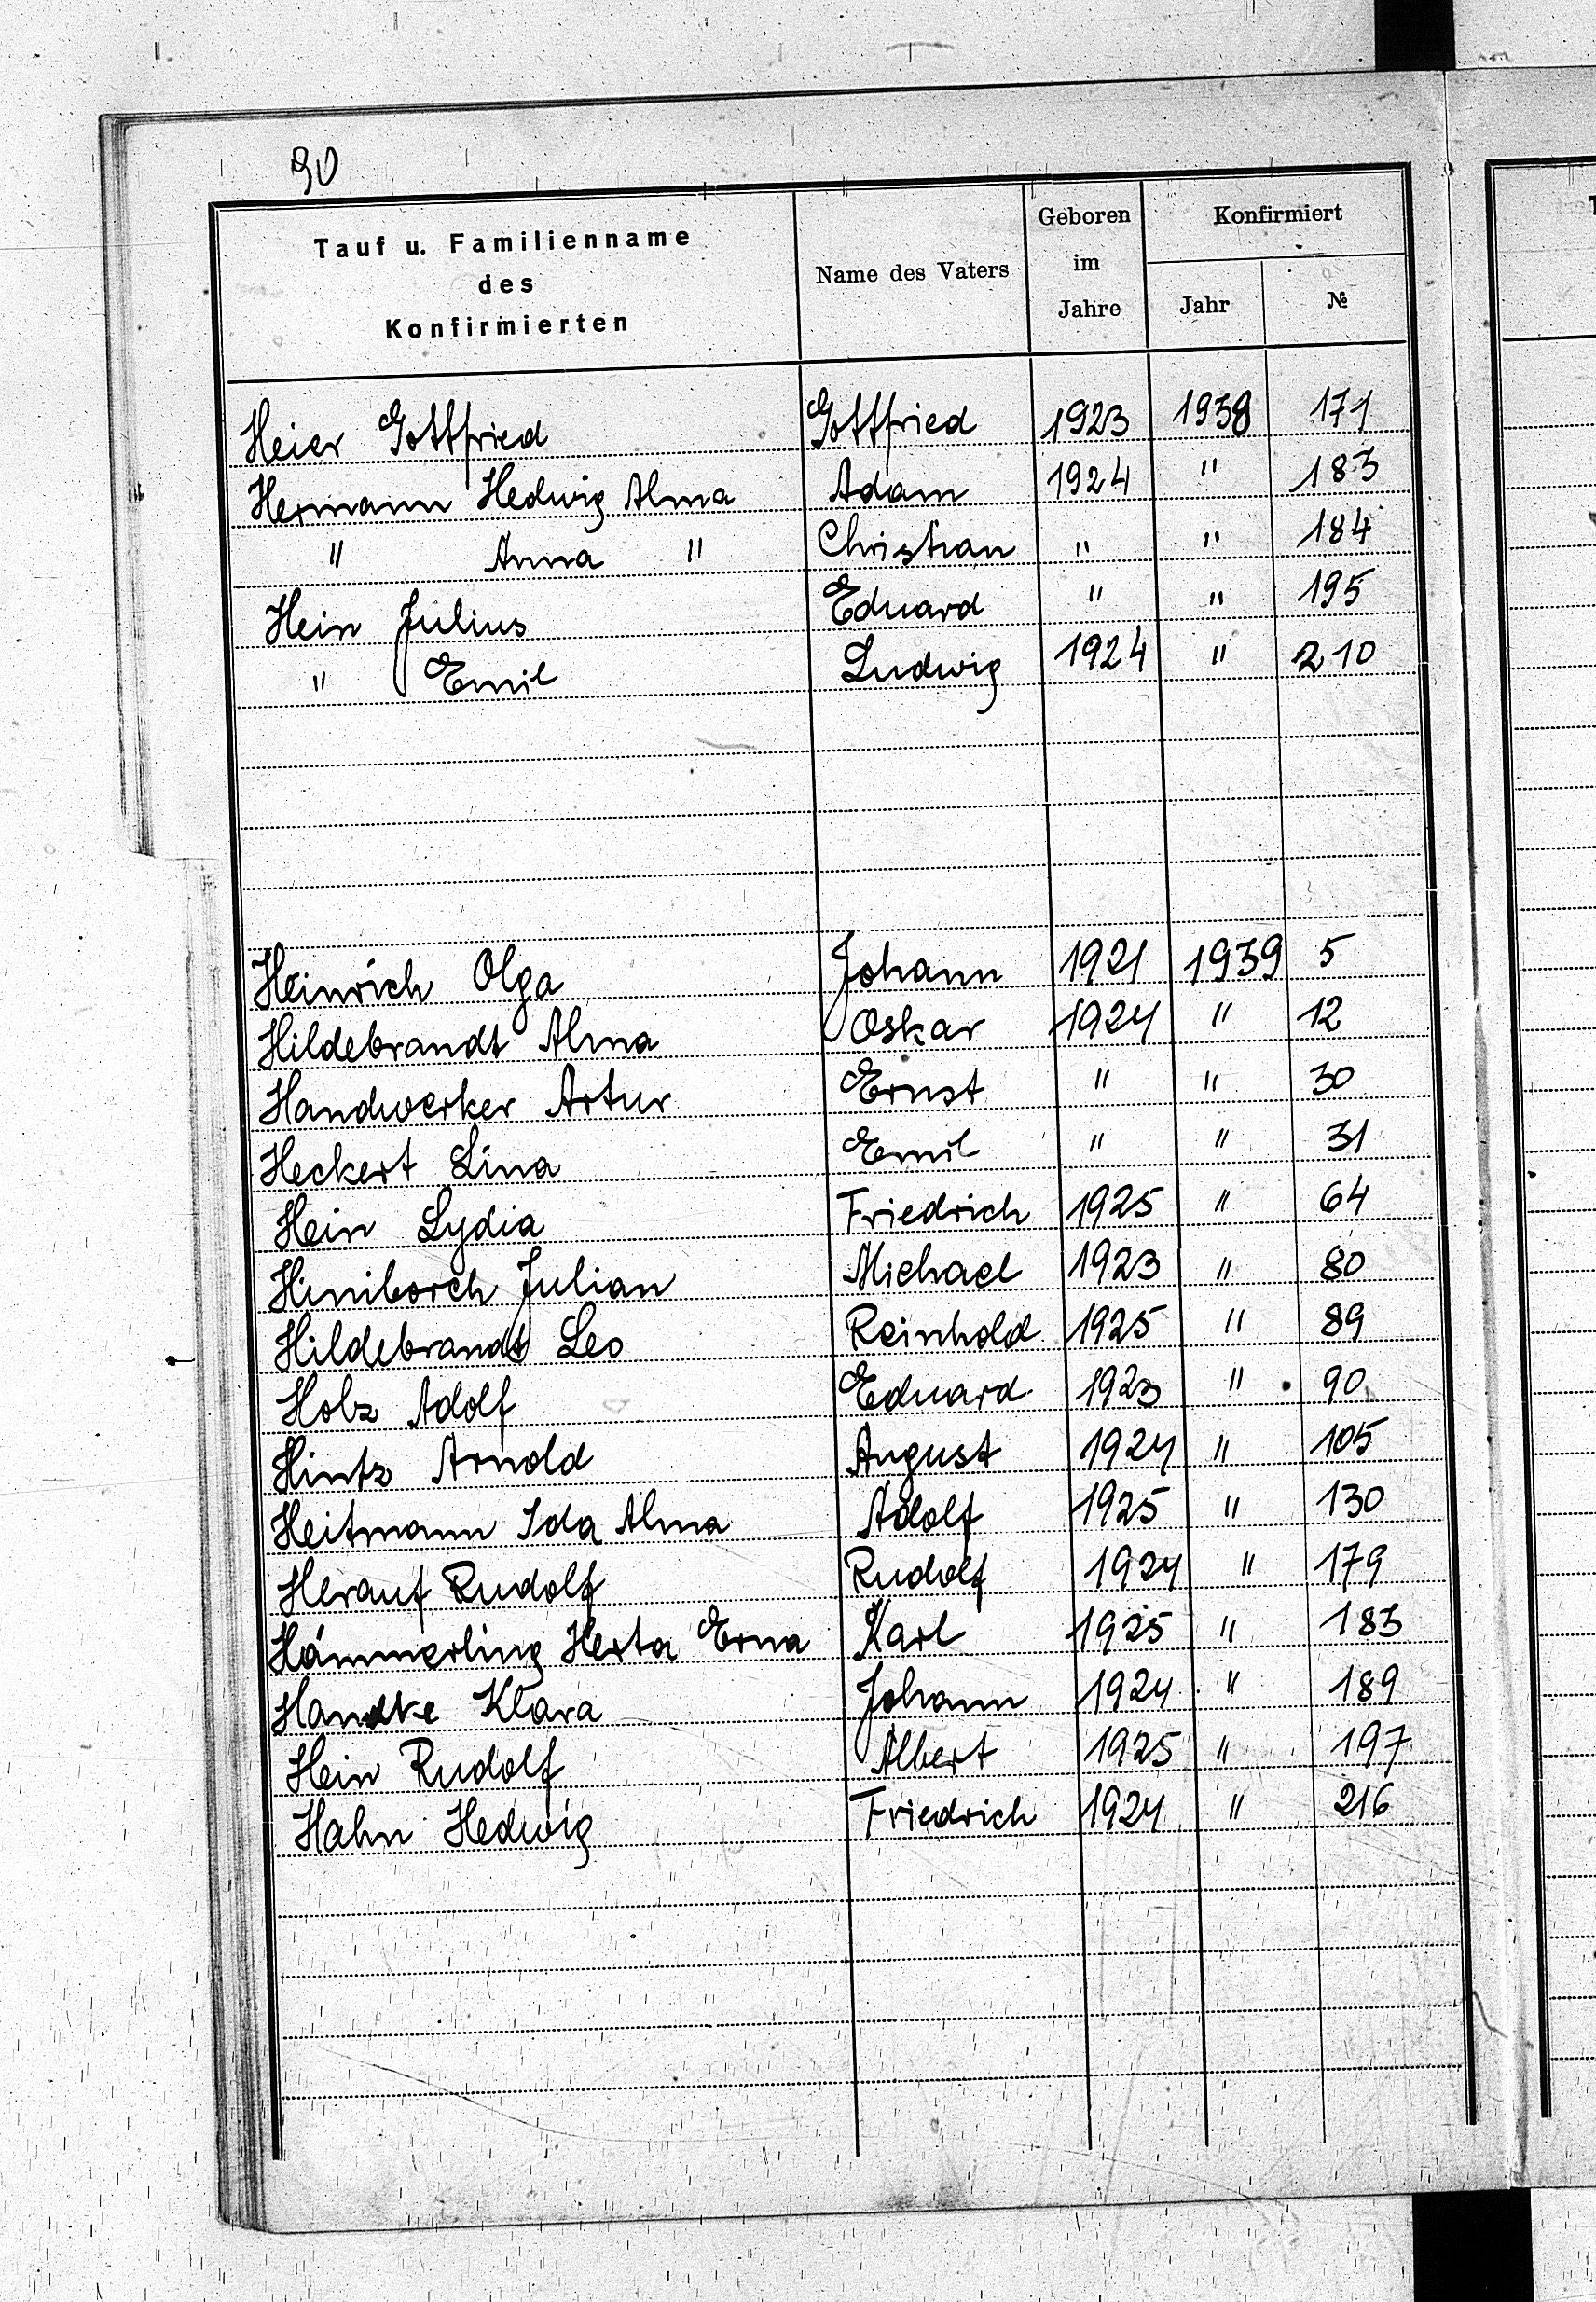 90
Tauf u. Familienname des Konfirmierten Name des Vaters Geboren im Jahre Konfirmiert Jahr №
Heier Gottfried Gottfried 1923 1938 171
Hermann Hedwig Alma Adam 1924 " 183
" Anna " Christian " " 184
Hein Julius Eduard " " 195
" Emil Ludwig 1924 " 210
Heinrich Olga Johann 1921 1939 5
Hildebrandt Alma Oskar 1924 " 12
Handwerker Artur Ernst " " 30
Heckert Lina Emil " " 31
Hein Lydia Friedrich 1925 " 64
Hiniborch Julian Michael 1923 " 80
Hildebrandt Leo Reinhold 1925 " 89
Holz Adolf Eduard 1923 " 90
Hintz Arnold August 1924 " 105
Heitmann Ida Alma Adolf 1925 " 130
Herauf Rudolf Rudolf 1924 " 179
Hämmerling Herta Erna Karl 1925 " 183
Handke Klara Johann 1924 " 189
Hein Rudolf Albert 1925 " 197
Hahn Hedwig Friedrich 1924 " 216